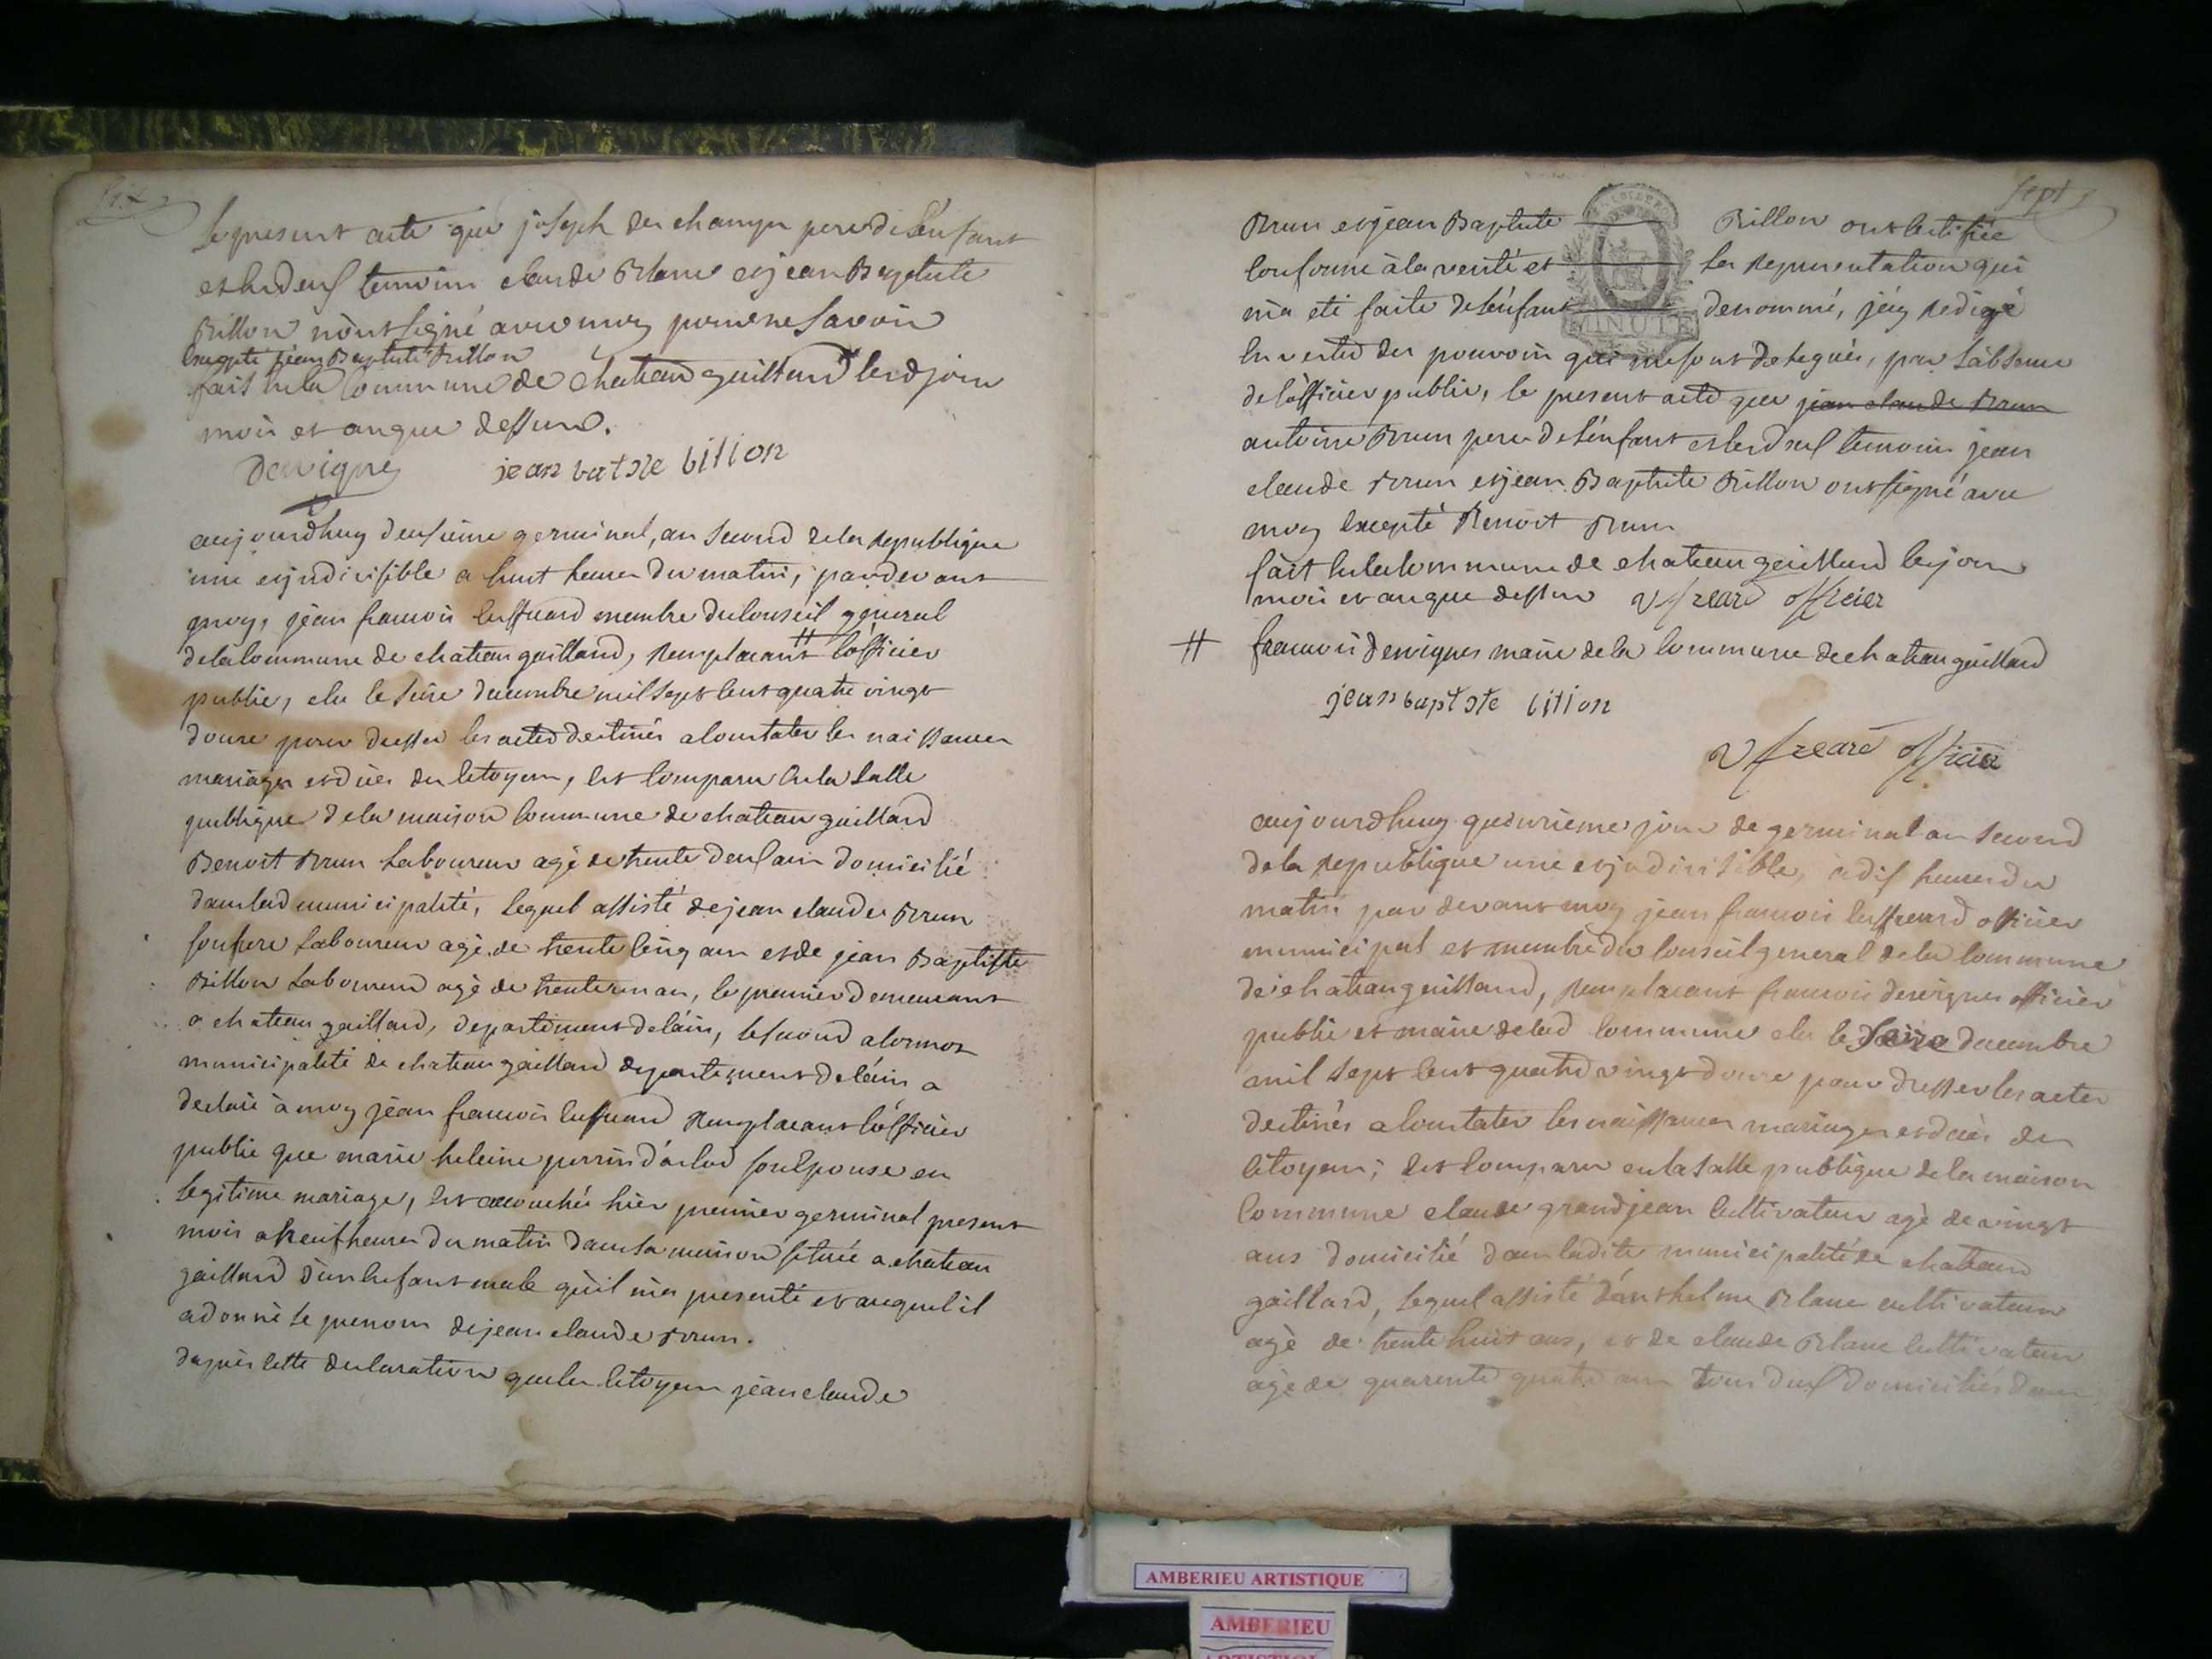 six
le present acte que joseph deschamps pere de l'enfant
et led deux temoins claude Blanc et jean Baptiste
Billon n'ont signé avec moy pour ne savoir
excepté jean Baptiste Billon
fait en la commune de chateau gaillard lesd jour
mois et an que dessus.
Devignes jean batste bilion
aujourdhuy deusieme germinal, an second de la republique
une et jndivisible a huit heures du matin, pardevant
moy, jean francois membre du conseil general
de la commune de chateau gaillard, remplacant # l'officier
public, elu le seize decembre mil sept cent quatre vingt
douze pour dresser les actes destinés a constater les naissances
mariages et décès des citoyens, est comparu en la salle
publique de la maison commune de chateau gaillard
Benoit Brun laboureur agé de trente deux ans domicilié
dans lad municipalité, lequel assisté de jean claude Brun
son frere laboureur agé de trente cinq ans et de jean Baptiste
Billon laboureur agé de trente un an, le premier demeurant
a chateau gaillard, departement de l'ain, le second a cormoz
municipalité de chateau gaillard departement de l'ain a
declaré à moy jean francois remplacant l'officier
public que marie heleine perrin d'aclod son epouse en
legitime mariage, est accouchée hier premier germinal present
mois a neuf heures du matin dans sa maison située a chateau
gaillard d'un enfant male qu'il m'a presenté et auquel il
a donné le prenom de jean claude Brun.
dapres cette declaration que les citoyens jean claude
sept
Brun et jean Baptiste Billon ont certifiée
conforme à la verité et la representation qui
m'a eté faite de l'enfant denommé, j'ay redigé
MINUTE
en vertu des pouvoirs qui me sont delegués, par l'absence
de l'officier public, le present acte que jean claude Brun
antoine Brun pere de l'enfant et led deux temoins jean
claude Brun et jean Baptiste Billon ont signé avec
moy excepté Benoit Brun
fait en la commune de chateau gaillard les jour
mois et an que dessus officier
# francois Devignes maire de la commune de chateau gaillard
jean baptste bilion
officier
aujourdhuy quatrieme jour de germinal an second
de la republique une et jndivisible, a dix heures du
matin par devant moy jean francois officier
municipal et membre du conseil general de la commune
de chateau gaillard, remplacant francois devignes officier
public et maire de lad commune elu le seize decembre
mil sept cent quatre vingt douze pour dresser les actes
destinés a constater les naissances mariages et décès des
citoyens; est comparu en la salle publique de la maison
commune claude grandjean cultivateur agé de vingt
ans domicilié dans ladite municipalité de chateau
gaillard, lequel assisté d'anthelme Blanc cultivateur
agé de trente huit ans, et de claude Blanc cultivateur
agé de quarente quatre ans tous deux domiciliés dans
AMBERIEU ARTISTIQUE
AMBERIEU
ARTISTIQUE